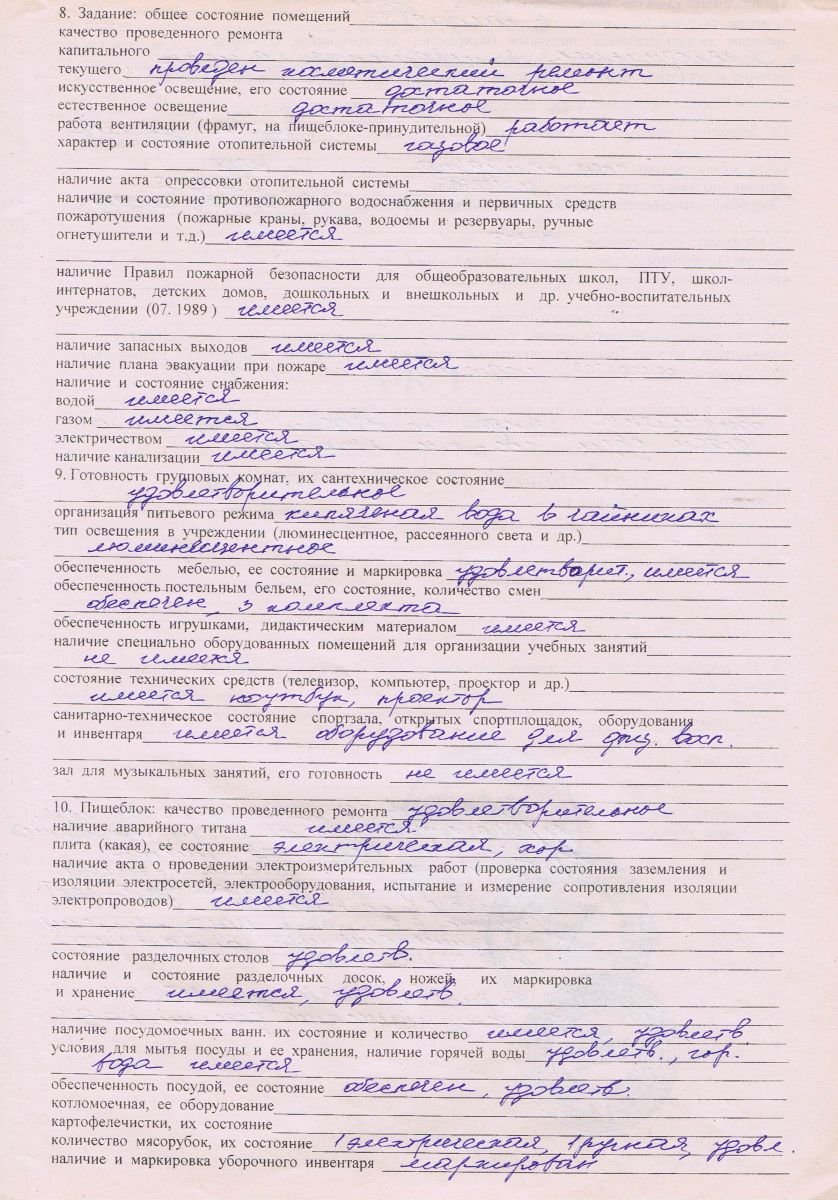 8. Задание: общее состояние помещений
качество проведенного ремонта
капитального
текущего проведен косметический ремонт
искусственное освещение, его состояние достаточное
естественное освещение достаточное
работа вентиляции (фрамуг, на пищеблоке-принудительной) работает
характер и состояние отопительной системы газовое
наличие акта опрессовки отопительной системы
наличие и состояние противопожарного водоснабжения и первичных средств
пожаротушения (пожарные краны, рукава, водоемы и резервуары, ручные
огнетушители и т.д.) имеется
наличие Правил пожарной безопасности для общеобразовательных школ, ПТУ, школ-
интернатов, детских домов, дошкольных и внешкольных и др. учебно-воспитательных
учреждении (07. 1989 ) имеется
наличие запасных выходов имеется
наличие плана эвакуации при пожаре имеется
наличие и состояние снабжения:
водой имеется
газом имеется
электричеством имеется
наличие канализации имеется
9. Готовность групповых комнат, их сантехническое состояние
удовлетворительное
организация питьевого режима кипяченая вода в чайниках
тип освещения в учреждении (люминесцентное, рассеянного света и др.)
люминесцентное
обеспеченность мебелью, ее состояние и маркировка удовлетворит., имеется
обеспеченность постельным бельем, его состояние, количество смен
обеспечен, 3 комплекта
обеспеченность игрушками, дидактическим материалом имеется
наличие специально оборудованных помещений для организации учебных занятий
не имеется
состояние технических средств (телевизор, компьютер, проектор и др.)
имеется ноутбук, проектор
санитарно-техническое состояние спортзала, открытых спортплощадок, оборудования
и инвентаря имеется оборудование для физ. восп.
зал для музыкальных занятий, его готовность не имеется
10. Пищеблок: качество проведенного ремонта удовлетворительное
наличие аварийного титана имеется
плита (какая), ее состояние электрическая, хор.
наличие акта о проведении электроизмерительных работ (проверка состояния заземления и
изоляции электросетей, электрооборудования, испытание и измерение сопротивления изоляции
электропроводов) имеется
состояние разделочных столов удовлетв.
наличие и состояние разделочных досок, ножей, их маркировка
и хранение имеется, удовлетв.
наличие посудомоечных ванн. их состояние и количество имеется, удовлетв.
условия для мытья посуды и ее хранения, наличие горячей воды удовлетв., гор.
вода имеется
обеспеченность посудой, ее состояние обеспечен, удовлетв.
котломоечная, ее оборудование
картофелечистки, их состояние
количество мясорубок, их состояние 1 электрическая, 1 ручная, удовл.
наличие и маркировка уборочного инвентаря маркирован